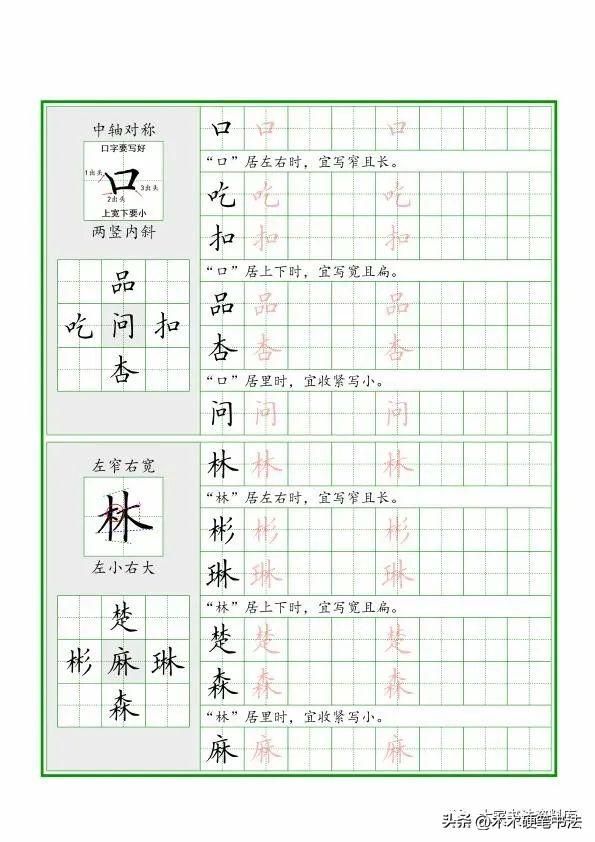 中轴对称
口字要写好
口
1出头
2出头
3出头
上宽下要小
两竖内斜
品
吃 问 扣
杏
口 口 口
“口”居左右时，宜写窄且长。
吃 吃 吃
扣 扣 扣
“口”居上下时，宜写宽且扁。
品 品 品
杏 杏 杏
“口”居里时，宜收紧写小。
问 问 问
左窄右宽
林
左小右大
楚
彬 麻 琳
森
林 林 林
“林”居左右时，宜写窄且长。
彬 彬 彬
琳 琳 琳
“林”居上下时，宜写宽且扁。
楚 楚 楚
森 森 森
“林”居里时，宜收紧写小。
麻 麻 麻
头条 @木木硬笔书法